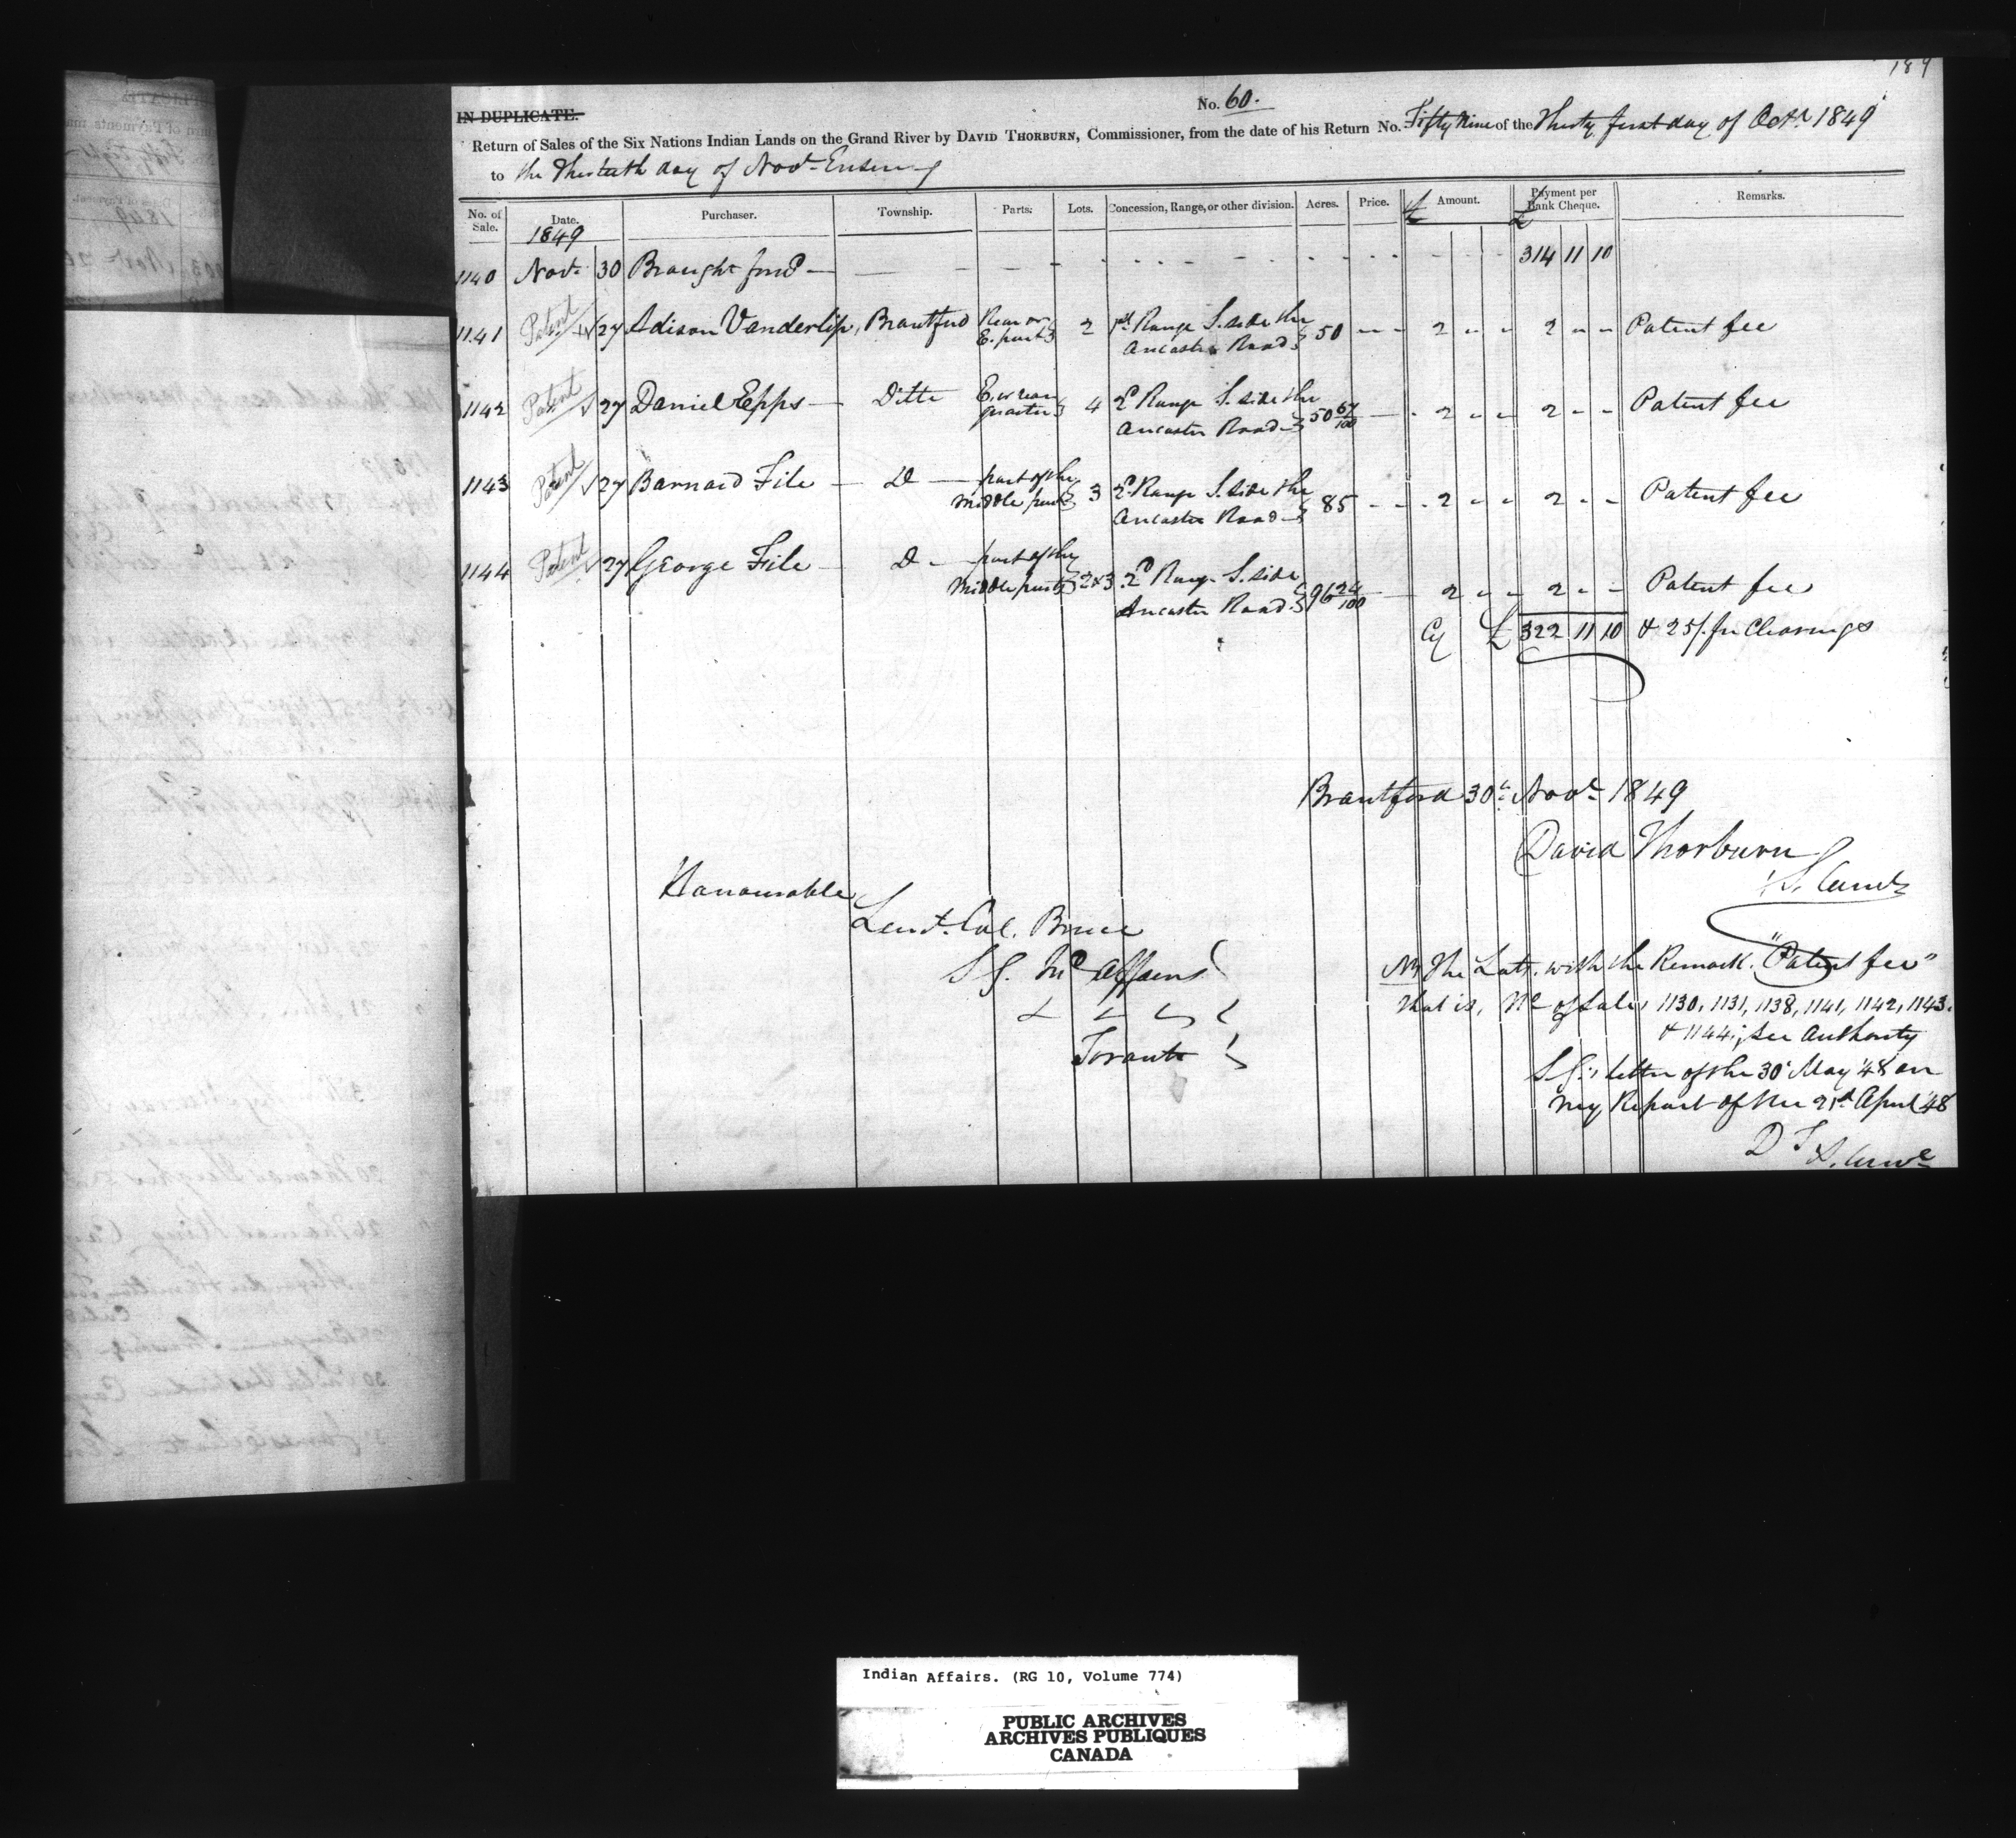 189
IN DUPLICATE.
No. 60.
Return of Sales of the Six Nations Indian Lands on the Grand River by DAVID THORBURN, Commissioner, from the date of his Return No. Fifty Nine of the Thirty first day of Octr 1849
to the Thirtieth day of Novr Ensuing
No. of Sale. Date. Purchaser. Township. Parts. Lots. Concession, Range, or other division. Acres. Price. £ Amount. £ Payment per Bank Cheque. Remarks.
1849
1140 Novr 30 Brought forwd — 314 11 10
1141 Patent 27 Adison Vanderlip, Brantford Rear or E. part 2 1st Range S. side the Ancaster Road 50 - - 2 - - 2 - - Patent fee
1142 Patent 27 Daniel Epps — Ditto E. or rear quarter 4 2d Range S. side the Ancaster Road 50 67/100 — 2 - - 2 - - Patent fee
1143 Patent 27 Barnard File — Do — part of the Middle part 3 2d Range S. side the Ancaster Road 85 - - 2 - - 2 - - Patent fee
1144 Patent 27 George File — Do — part of the Middle parts 2 & 3 2d Range S. side Ancaster Road 96 24/100 — 2 - - 2 - - Patent fee
Cy £ 322 11 10 & 25/. for Clearings
Brantford 30th Novr 1849
David Thorburn
Honourable
Lieut. Col. Bruce
S G. Ind Affairs
& & &
Toronto
NB The Lots with the Remark "Patent fee"
that is, No of Sales 1130, 1131, 1138, 1141, 1142, 1143.
& 1144; see Authority
S G's letter of the 30 May '48 on
my Report of the 21st April '48
D T
Indian Affairs. (RG 10, Volume 774)
PUBLIC ARCHIVES
ARCHIVES PUBLIQUES
CANADA